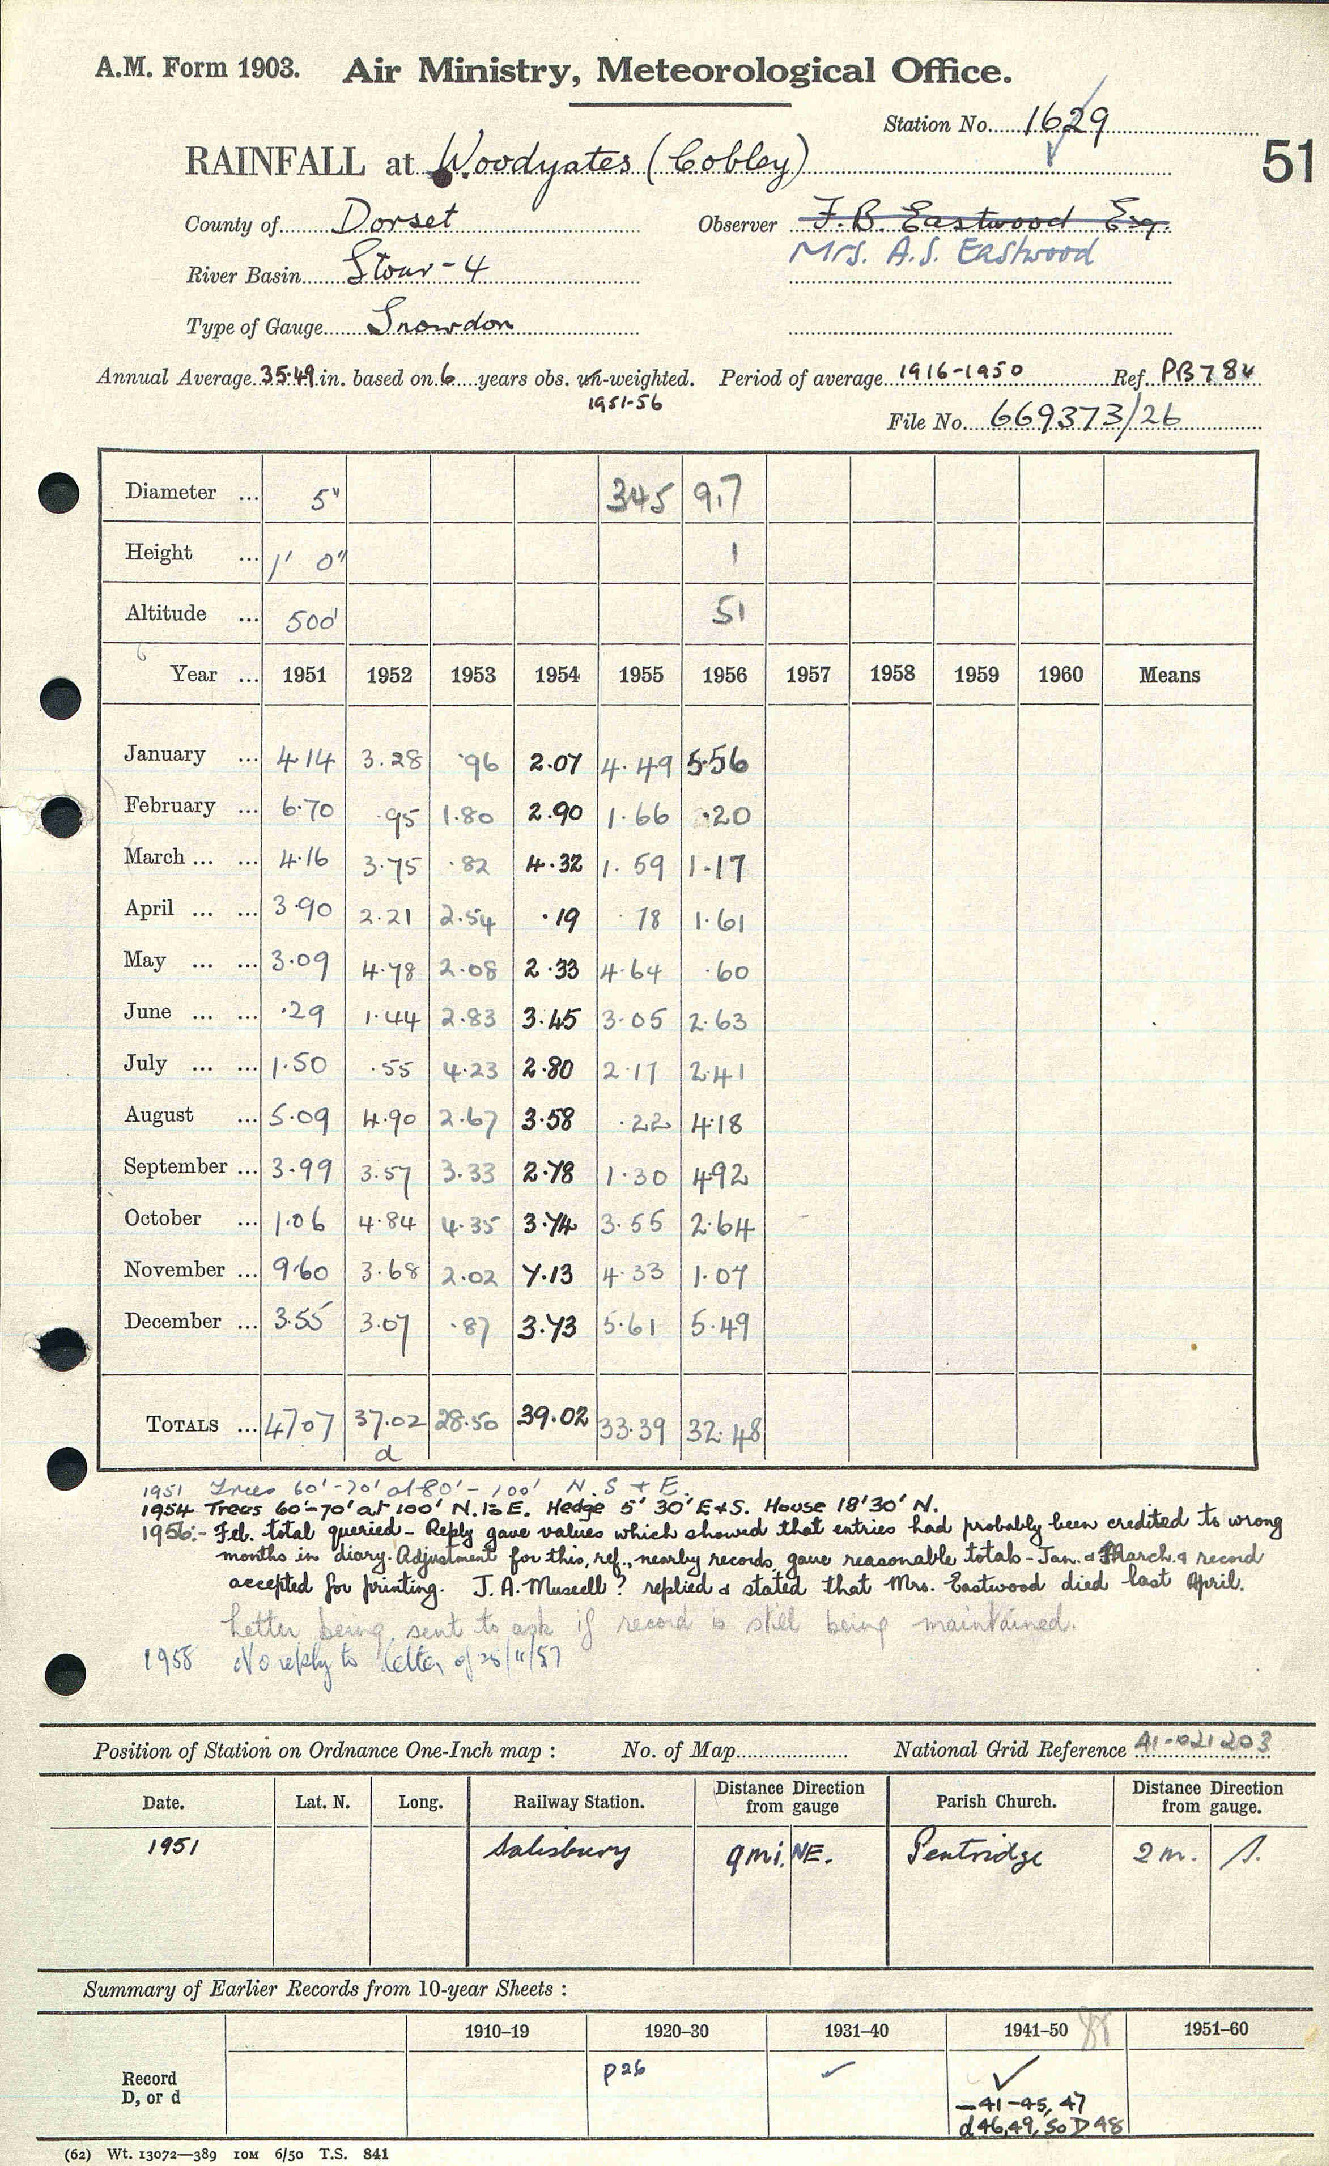 A.M. Form 1903. Air Ministry, Meteorological Office.
Station No. 1629
51
RAINFALL at Woodyates (Cobley)
County of Dorset Observer F.B. Eastwood Esq.
Mrs. A.S. Eastwood
River Basin Stour - 4
Type of Gauge Snowdon
Annual Average 35.49 in. based on 6 years obs. un-weighted. Period of average 1916-1950 Ref. PB784
1951-56
File No. 669373/26
Diameter ... 5" 345 9.7
Height ... 1' 0" 1
Altitude ... 500' 51
Year ... 1951 1952 1953 1954 1955 1956 1957 1958 1959 1960 Means
January ... 4.14 3.28 .96 2.07 4.49 5.56
February ... 6.70 .95 1.80 2.90 1.66 .20
March ... ... 4.16 3.75 .82 4.32 1.59 1.17
April ... ... 3.90 2.21 2.54 .19 .78 1.61
May ... ... 3.09 4.78 2.08 2.33 4.64 .60
June ... ... .29 1.44 2.83 3.45 3.05 2.63
July ... ... 1.50 .55 4.23 2.80 2.17 2.41
August ... 5.09 4.90 2.67 3.58 .22 4.18
September ... 3.99 3.57 3.33 2.78 1.30 4.92
October ... 1.06 4.84 4.35 3.74 3.55 2.64
November ... 9.60 3.68 2.02 7.13 4.33 1.07
December ... 3.55 3.07 .87 3.73 5.61 5.49
TOTALS ... 47.07 37.02 28.50 39.02 33.39 32.48
d
1951 Trees 60'-70' at 80'-100' N. S + E.
1954 Trees 60'-70' at 100' N. to E. Hedge 5' 30' E & S. House 18' 30' N.
1956:- Feb. total queried - Reply gave values which showed that entries had probably been credited to wrong
months in diary. Adjustment for this, ref., nearby records, gave reasonable totals - Jan. & March & record
accepted for printing. J. A. Mussell? replied & stated that Mrs. Eastwood died last April.
Letter being sent to ask if record is still being maintained.
1958 No reply to letter of 25/11/57
Position of Station on Ordnance One-Inch map : No. of Map National Grid Reference 41-021203
Date. Lat. N. Long. Railway Station. Distance from gauge Direction Parish Church. Distance from gauge. Direction
1951 Salisbury 9 mi. NE. Pentridge 2 m. S.
Summary of Earlier Records from 10-year Sheets :
1910-19 1920-30 1931-40 1941-50 1951-60
Record P26 ✓ ✓
D, or d -41-45, 47
d 46,49,'50 D 48
(62) Wt. 13072—389 10M 6/50 T.S. 841